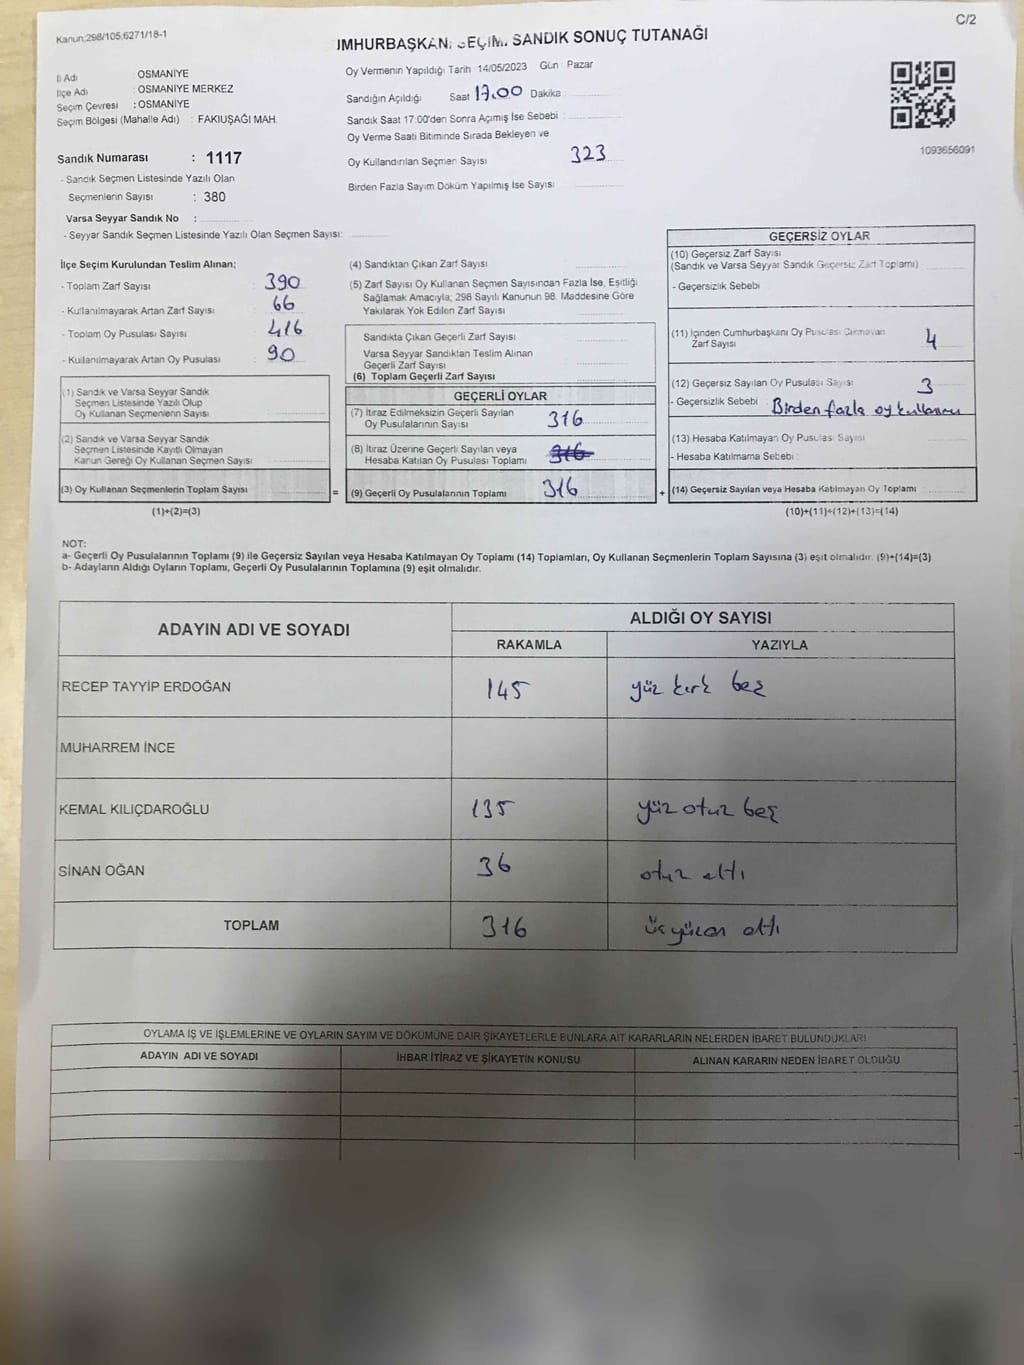 Kanun;298/105,6271/18-1
C/2
IMHURBAŞKAN SEÇİMİ SANDIK SONUÇ TUTANAĞI
İl Adı : OSMANİYE
İlçe Adı : OSMANİYE MERKEZ
Seçim Çevresi : OSMANİYE
Seçim Bölgesi (Mahalle Adı) : FAKIUŞAĞI MAH.
Sandık Numarası : 1117
- Sandık Seçmen Listesinde Yazılı Olan
Seçmenlerin Sayısı : 380
Varsa Seyyar Sandık No :
- Seyyar Sandık Seçmen Listesinde Yazılı Olan Seçmen Sayısı:
Oy Vermenin Yapıldığı Tarih : 14/05/2023 Gün : Pazar
Sandığın Açıldığı Saat 17.00 Dakika
Sandık Saat 17:00'den Sonra Açımış İse Sebebi :
Oy Verme Saati Bitiminde Sırada Bekleyen ve
Oy Kullandırılan Seçmen Sayısı 323
Birden Fazla Sayım Döküm Yapılmış İse Sayısı
1093656091
İlçe Seçim Kurulundan Teslim Alınan;
- Toplam Zarf Sayısı : 390
- Kullanılmayarak Artan Zarf Sayısı : 66
- Toplam Oy Pusulası Sayısı : 416
- Kullanılmayarak Artan Oy Pusulası : 90
(1) Sandık ve Varsa Seyyar Sandık
Seçmen Listesinde Yazılı Olup
Oy Kullanan Seçmenlerin Sayısı
(2) Sandık ve Varsa Seyyar Sandık
Seçmen Listesinde Kayıtlı Olmayan
Kanun Gereği Oy Kullanan Seçmen Sayısı
(3) Oy Kullanan Seçmenlerin Toplam Sayısı
(1)+(2)=(3)
(4) Sandıktan Çıkan Zarf Sayısı
(5) Zarf Sayısı Oy Kullanan Seçmen Sayısından Fazla İse, Eşitliği
Sağlamak Amacıyla; 298 Sayılı Kanunun 98. Maddesine Göre
Yakılarak Yok Edilen Zarf Sayısı
Sandıkta Çıkan Geçerli Zarf Sayısı
Varsa Seyyar Sandıktan Teslim Alınan
Geçerli Zarf Sayısı
(6) Toplam Geçerli Zarf Sayısı
GEÇERLİ OYLAR
(7) İtiraz Edilmeksizin Geçerli Sayılan
Oy Pusulalarının Sayısı 316
(8) İtiraz Üzerine Geçerli Sayılan veya
Hesaba Katılan Oy Pusulası Toplamı 316
= (9) Geçerli Oy Pusulalarının Toplamı 316 +
GEÇERSİZ OYLAR
(10) Geçersiz Zarf Sayısı
(Sandık ve Varsa Seyyar Sandık Geçersiz Zarf Toplamı)
- Geçersizlik Sebebi
(11) İçinden Cumhurbaşkanı Oy Pusulası Çıkmayan
Zarf Sayısı 4
(12) Geçersiz Sayılan Oy Pusulası Sayısı 3
- Geçersizlik Sebebi : Birden fazla oy kullanımı
(13) Hesaba Katılmayan Oy Pusulası Sayısı
- Hesaba Katılmama Sebebi :
(14) Geçersiz Sayılan veya Hesaba Katılmayan Oy Toplamı
(10)+(11)+(12)+(13)=(14)
NOT:
a- Geçerli Oy Pusulalarının Toplamı (9) ile Geçersiz Sayılan veya Hesaba Katılmayan Oy Toplamı (14) Toplamları, Oy Kullanan Seçmenlerin Toplam Sayısına (3) eşit olmalıdır. (9)+(14)=(3)
b- Adayların Aldığı Oyların Toplamı, Geçerli Oy Pusulalarının Toplamına (9) eşit olmalıdır.
ADAYIN ADI VE SOYADI
ALDIĞI OY SAYISI
RAKAMLA YAZIYLA
RECEP TAYYİP ERDOĞAN 145 yüz kırk beş
MUHARREM İNCE
KEMAL KILIÇDAROĞLU 135 yüz otuz beş
SİNAN OĞAN 36 otuz altı
TOPLAM 316 üç yüz on altı
OYLAMA İŞ VE İŞLEMLERİNE VE OYLARIN SAYIM VE DÖKÜMÜNE DAİR ŞİKAYETLERLE BUNLARA AİT KARARLARIN NELERDEN İBARET BULUNDUKLARI
ADAYIN ADI VE SOYADI İHBAR İTİRAZ VE ŞİKAYETİN KONUSU ALINAN KARARIN NEDEN İBARET OLDUĞU